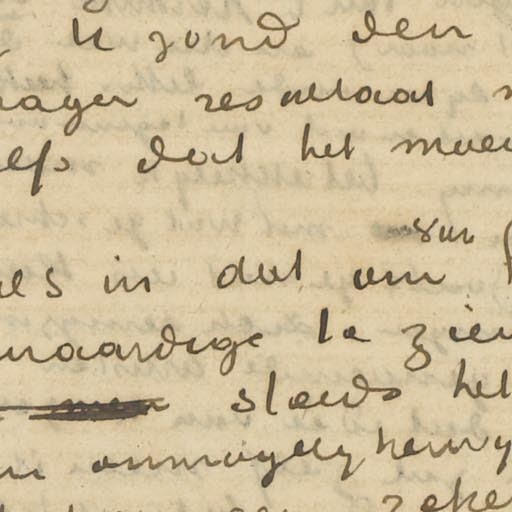 U zond den
mager resultaat
zelfs dat het moei
van
es in dat om
waardige te zien
steeds het
onmogelykheid
zeke